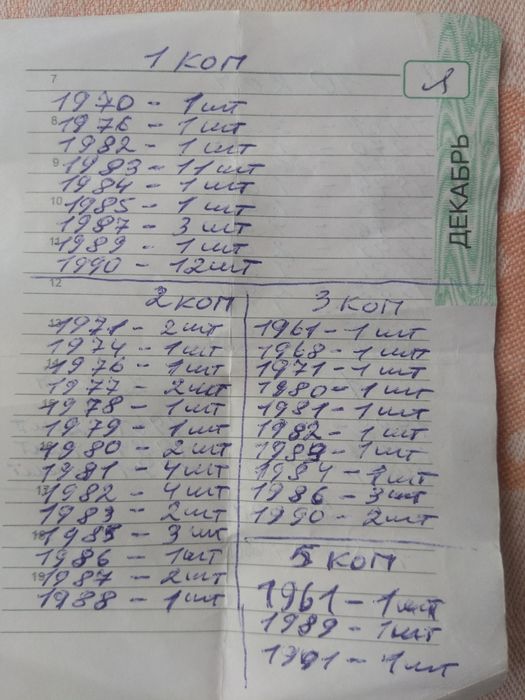 1 коп
Я
ДЕКАБРЬ
7
1970 - 1 шт
8
1976 - 1 шт
1982 - 1 шт
9
1983 - 11 шт
1984 - 1 шт
10
1985 - 1 шт
1987 - 3 шт
11
1989 - 1 шт
1990 - 12 шт
12
2 коп
1971 - 2 шт
1974 - 1 шт
1976 - 1 шт
1977 - 2 шт
1978 - 1 шт
1979 - 1 шт
1980 - 2 шт
1981 - 4 шт
17
1982 - 4 шт
1983 - 2 шт
18
1985 - 3 шт
1986 - 1 шт
19
1987 - 2 шт
1988 - 1 шт
3 коп
1961 - 1 шт
1968 - 1 шт
1971 - 1 шт
1980 - 1 шт
1981 - 1 шт
1982 - 1 шт
1989 - 1 шт
1984 - 1 шт
1986 - 3 шт
1990 - 2 шт
5 коп
1961 - 1 шт
1989 - 1 шт
1991 - 1 шт